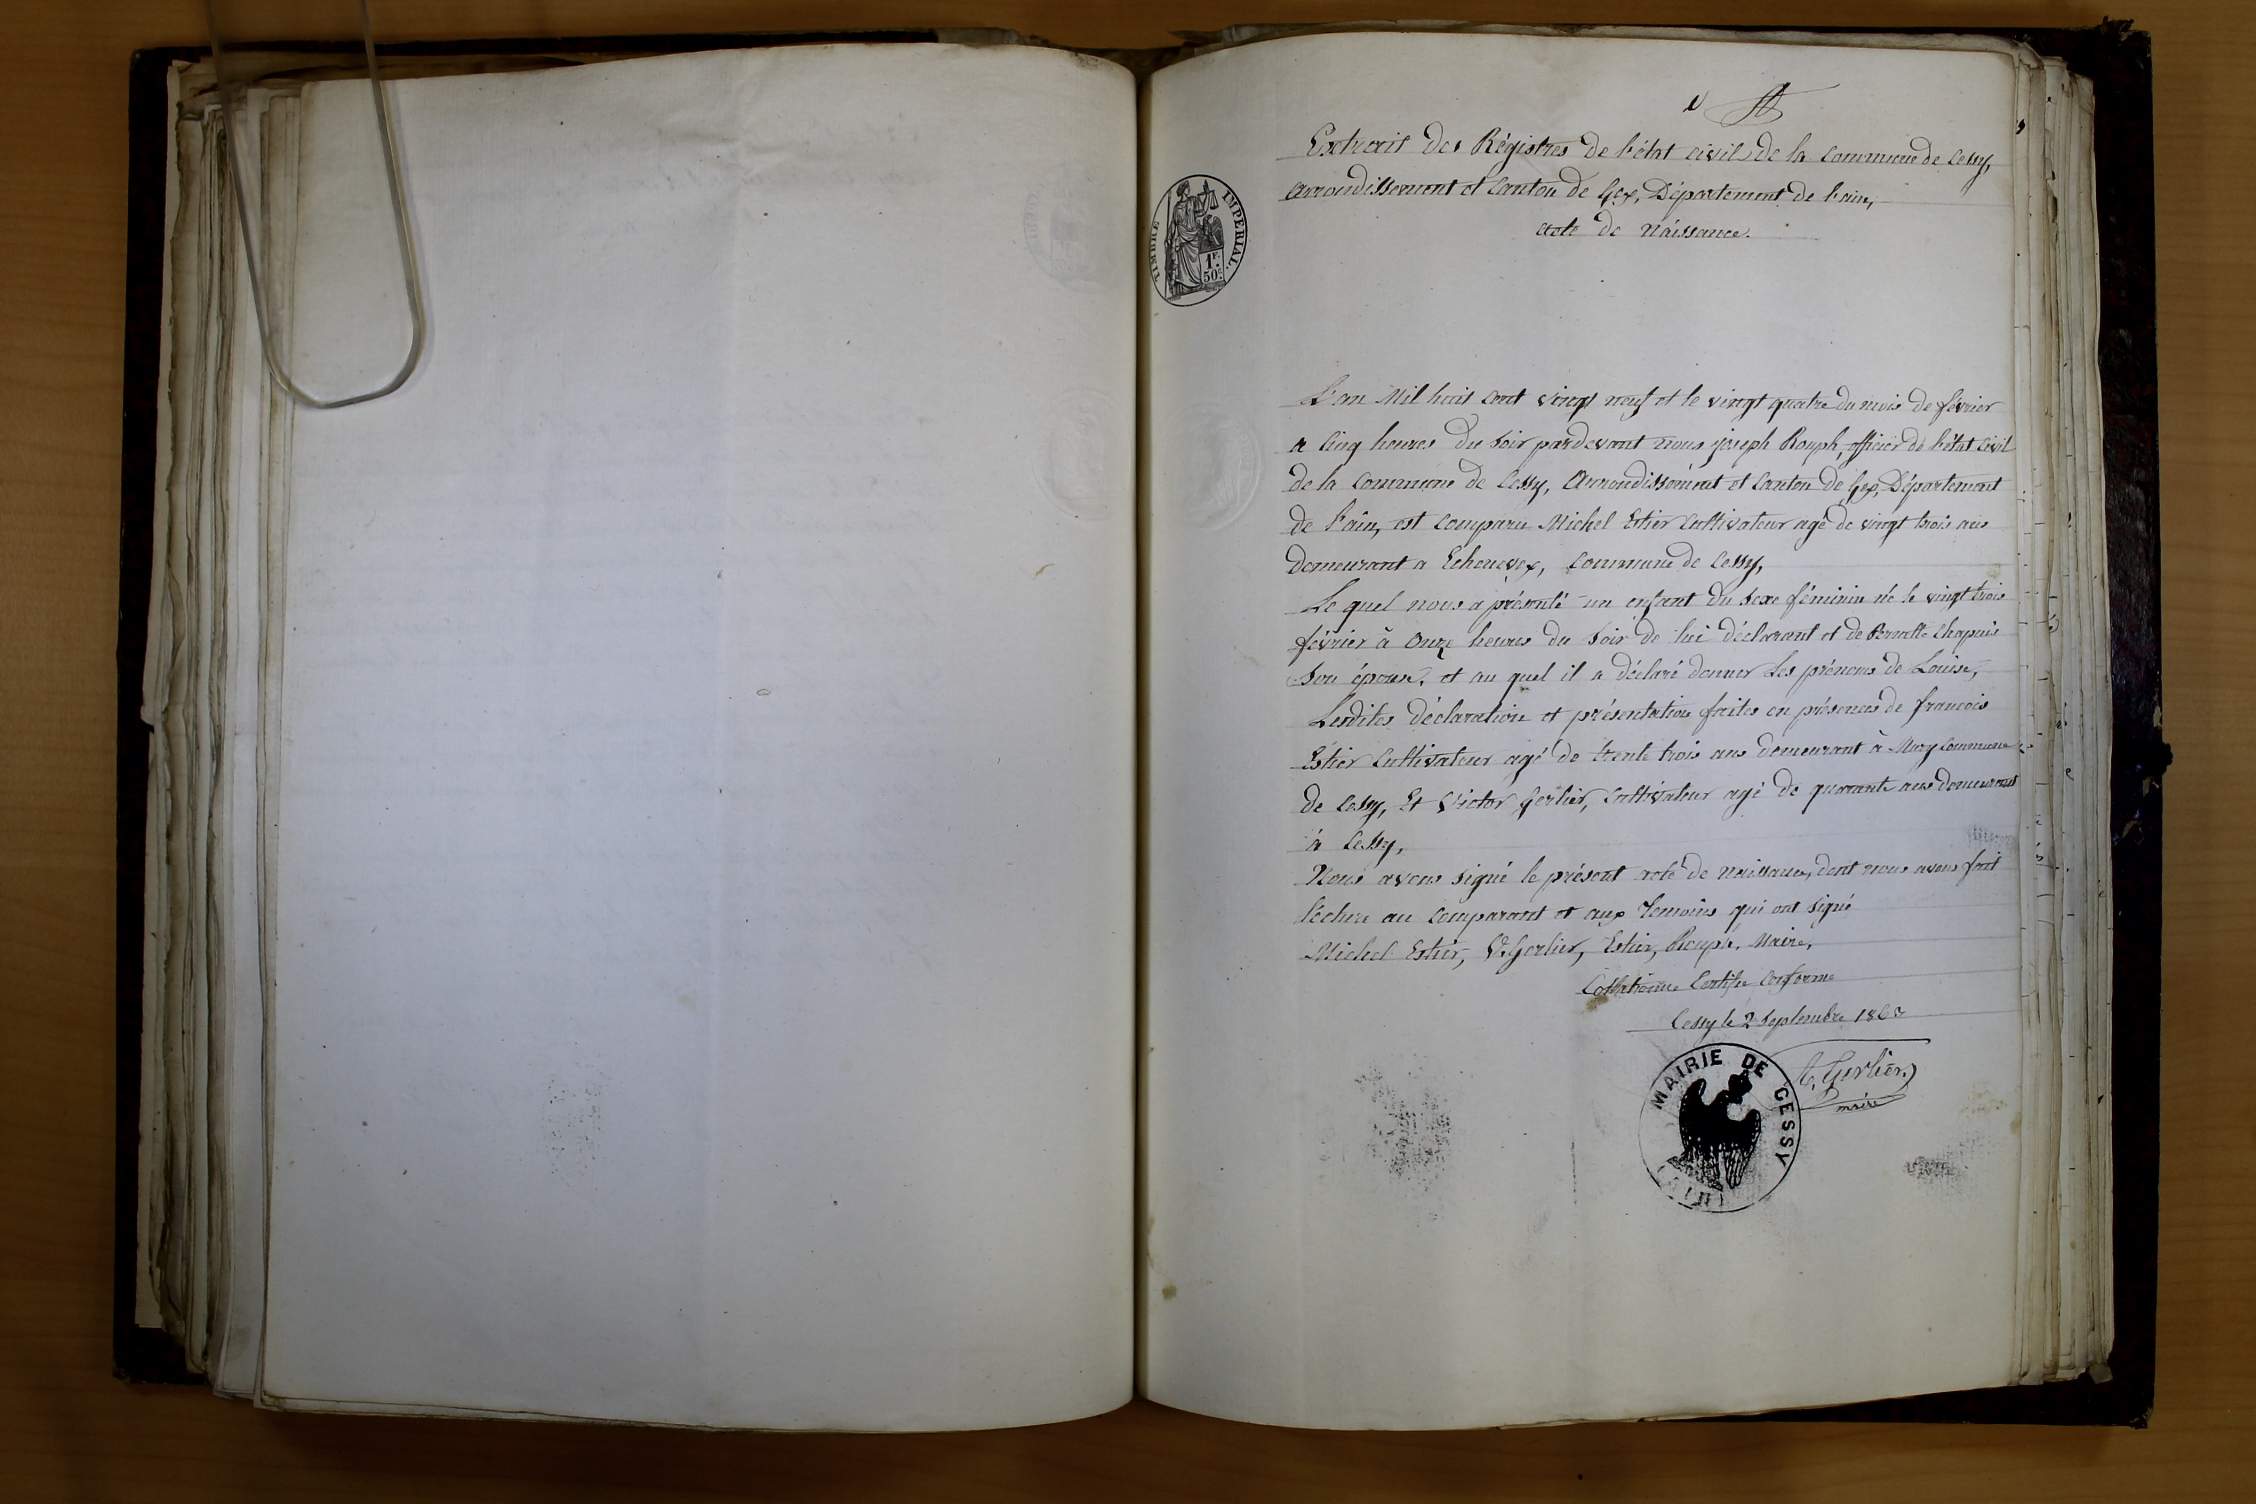 Extrait des Régistres de l'état civil de la commune de Cessy,
arrondissement et Canton de Gex, Département de l'ain,
acte de Naissance.
TIMBRE IMPERIAL.
1F. 50c.
L'an Mil huit cent vingt neuf et le vingt quatre du mois de février
a Cinq heures du soir pardevant nous joseph Rouph, officier de l'état Civil
de la Commune de Cessy, Arrondissement et Canton de Gex, Département
de l'ain, est comparu Michel Estier Cultivateur agé de vingt trois ans
demeurant a Echenevex, Commune de Cessy,
Le quel nous a présenté un enfant du sexe féminin né le vingt trois
février à Onze heures du soir de lui déclarant et de Pernette Chapuis
son épouse, et au quel il a déclaré donner les prénoms de Louise,
Lesdites déclaration et présentation faites en présence de francois
Estier Cultivateur agé de trente trois ans demeurant à Mury Commune
de Cessy, Et Victor Gerlier, Cultivateur agé de quarante ans demeurant
à Cessy,
Nous avons signé le présent acte de naissance, dont nous avons fait
lécture au Comparant et aux Temoins qui ont signé
Michel Estier, V. Gerlier, Estier, Rouph, Maire,
Collationné Certifié Conforme
Cessy le 2 Septembre 186
Gerlier
maire
MAIRIE DE CESSY
(AIN)